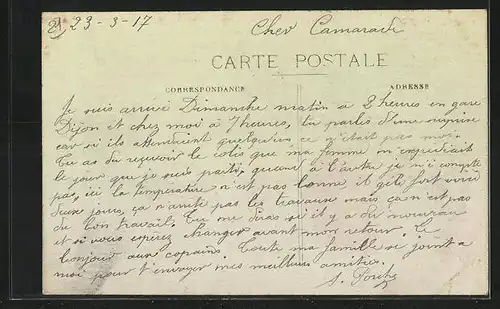 23-3-17 Cher Camarade
CARTE POSTALE
CORRESPONDANCE ADRESSE
Je suis arrivé Dimanche matin a 2 heures en gare
Dijon et chez moi à 7 heures, tu parles d'une surprise
car si ils attendaient quelqu'un ce n'était pas moi.
Tu as du recevoir le colis que ma femme m'expédiait
le jour que je suis parti, quand à l'autre je n'y compte
pas, ici la température n'est pas bonne il gèle fort voici
deux jours, ça n'arrête pas les travaux mais ça n'est pas
du bon travail. Tu me diras si il y a du nouveau
et si vous espérez changer avant mon retour. Le
bonjour aux copains. Toute ma famille se joint a
moi pour t'envoyer mes meilleures amitiés.